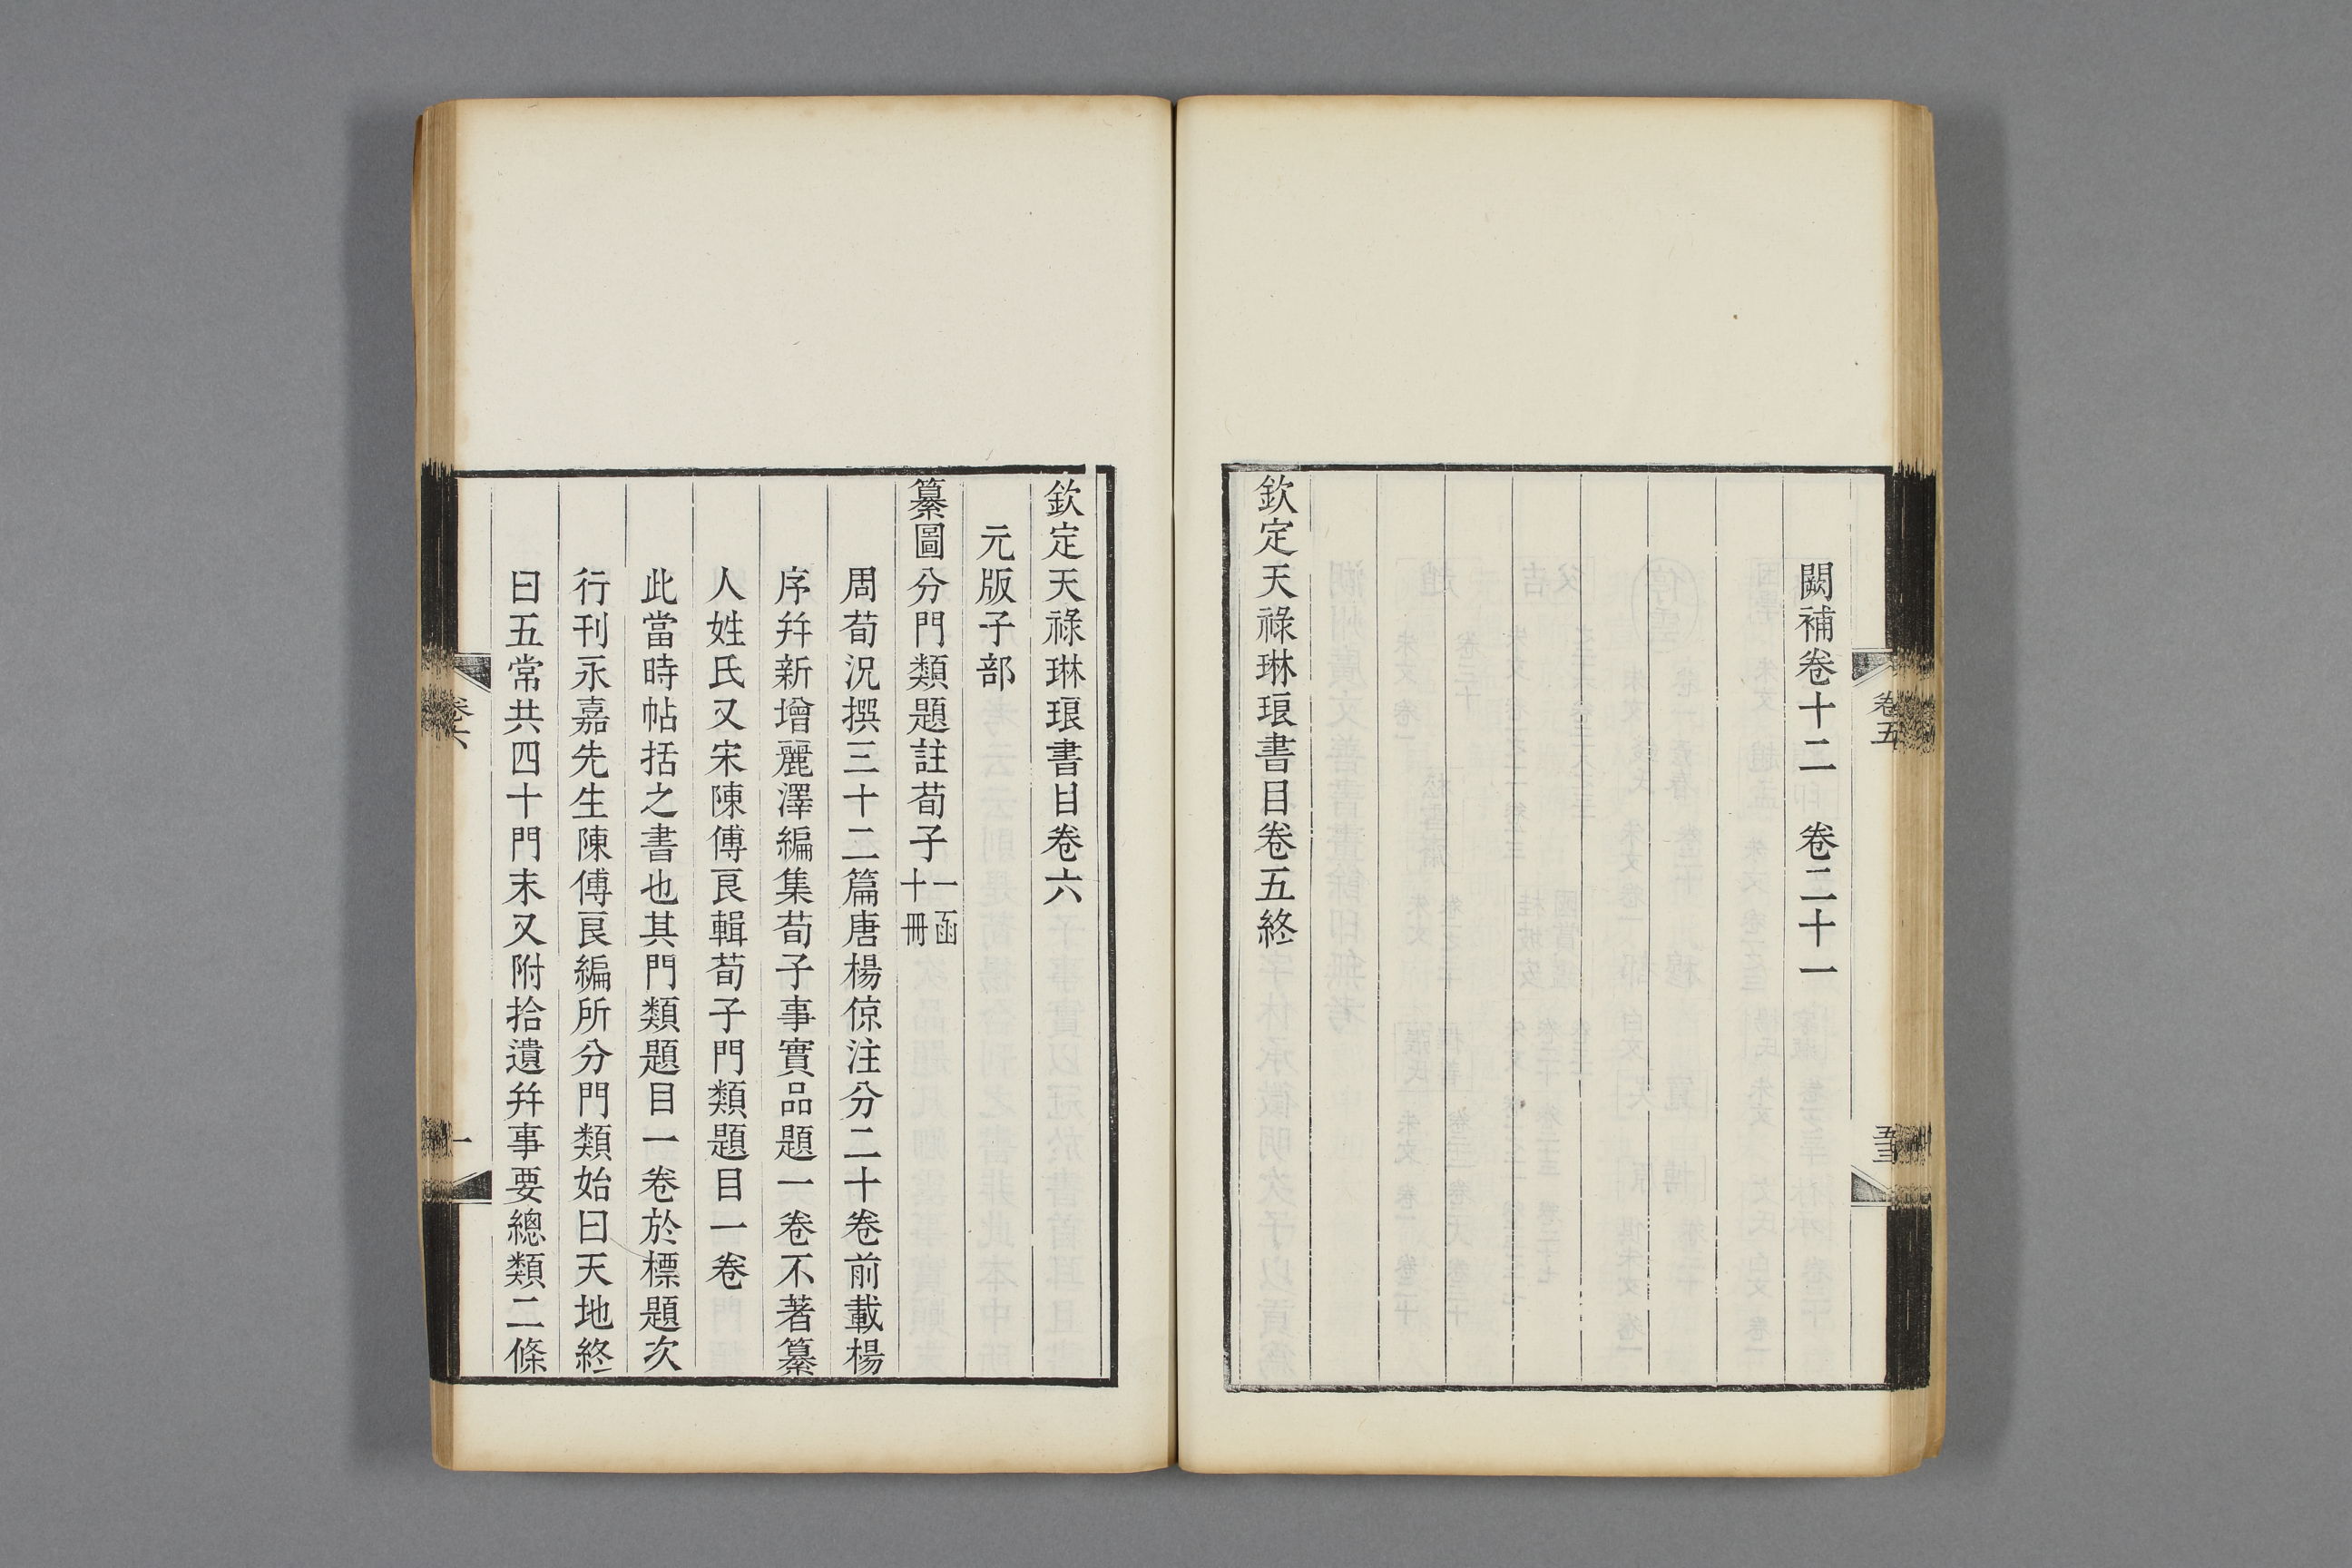 闕補卷十二　卷二十一
欽定天祿琳琅書目卷五終
卷五
欽定天祿琳琅書目卷六
元版子部
纂圖分門類題註荀子一函十冊
周荀況撰三十二篇唐楊倞注分二十卷前載楊
序幷新增麗澤編集荀子事實品題一卷不著纂
人姓氏又宋陳傅良輯荀子門類題目一卷
此當時帖括之書也其門類題目一卷於標題次
行刊永嘉先生陳傅良編所分門類始曰天地終
曰五常共四十門末又附拾遺幷事要總類二條
卷六
一